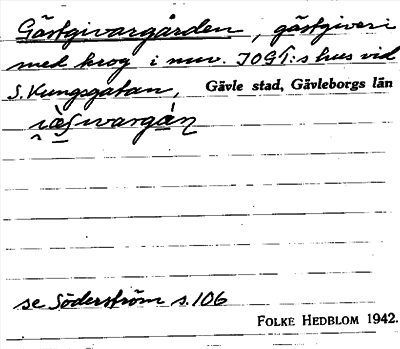 Gästgivargården, gästgiveri
med krog i nuv. IOGT:s hus vid
S. Kungsgatan, Gävle stad, Gävleborgs län
se Söderström s. 106
FOLKE HEDBLOM 1942.